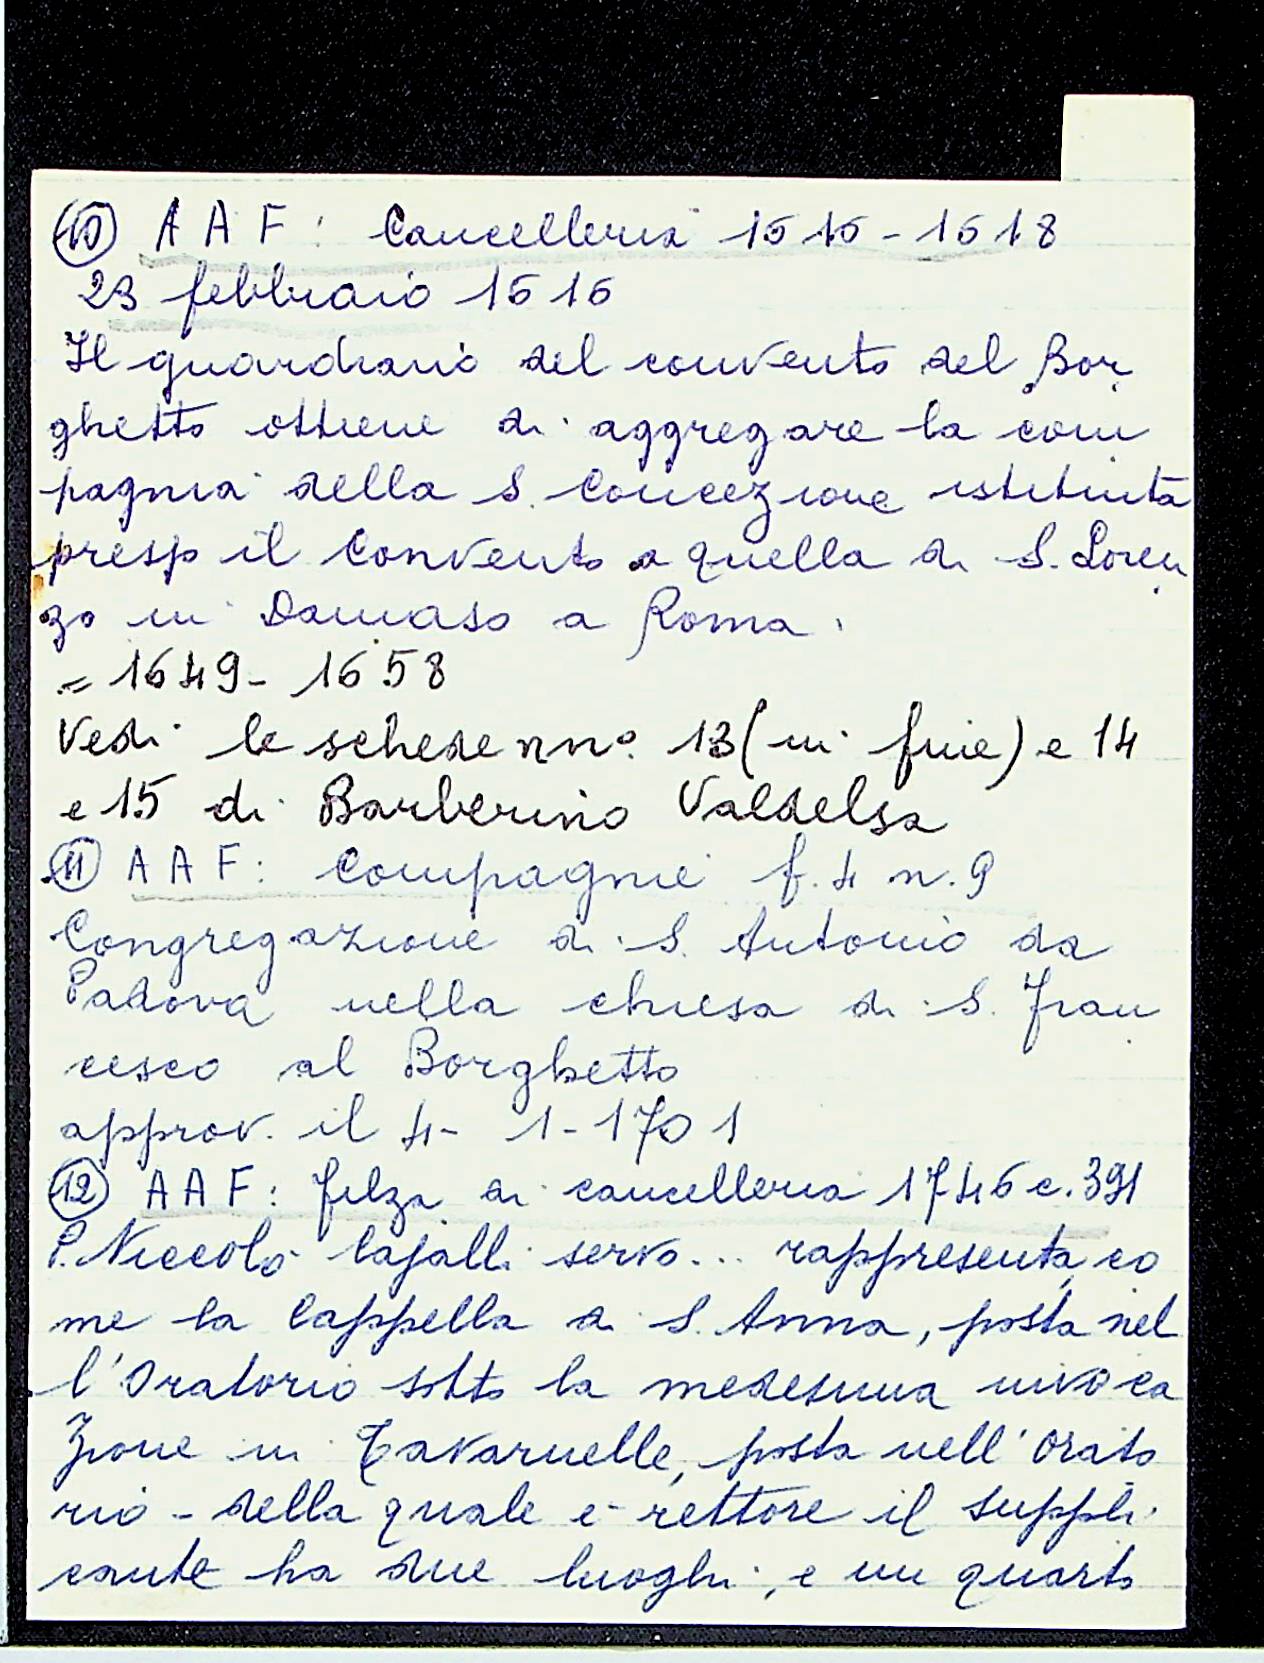 ⑩ A A F : Cancelleria 1616-1618
23 febbraio 1616
Il guardiano del convento del Bor
ghetto ottiene di aggregare la com
pagnia della S. Concezione istituita
presso il Convento a quella di S. Loren
zo in Damaso a Roma.
= 1649 - 1658
Vedi le schede nn° 13 (in fine) e 14
e 15 di Barberino Valdelsa
⑪ A A F : Compagnie f. 4 n. 9
Congregazione di S. Antonio da
Padova nella chiesa di S. Fran
cesco al Borghetto
approv. il 4 - 1 - 1701
⑫ A A F : filza di cancelleria 1746 c. 391
P. Niccolò servo... rappresenta, co
me la Cappella di S. Anna, posta nel
l'Oratorio sotto la medesima invoca
zione in Tavarnelle, posta nell'Orato
rio - della quale è rettore il suppli
cante ha due luoghi, e un quarto